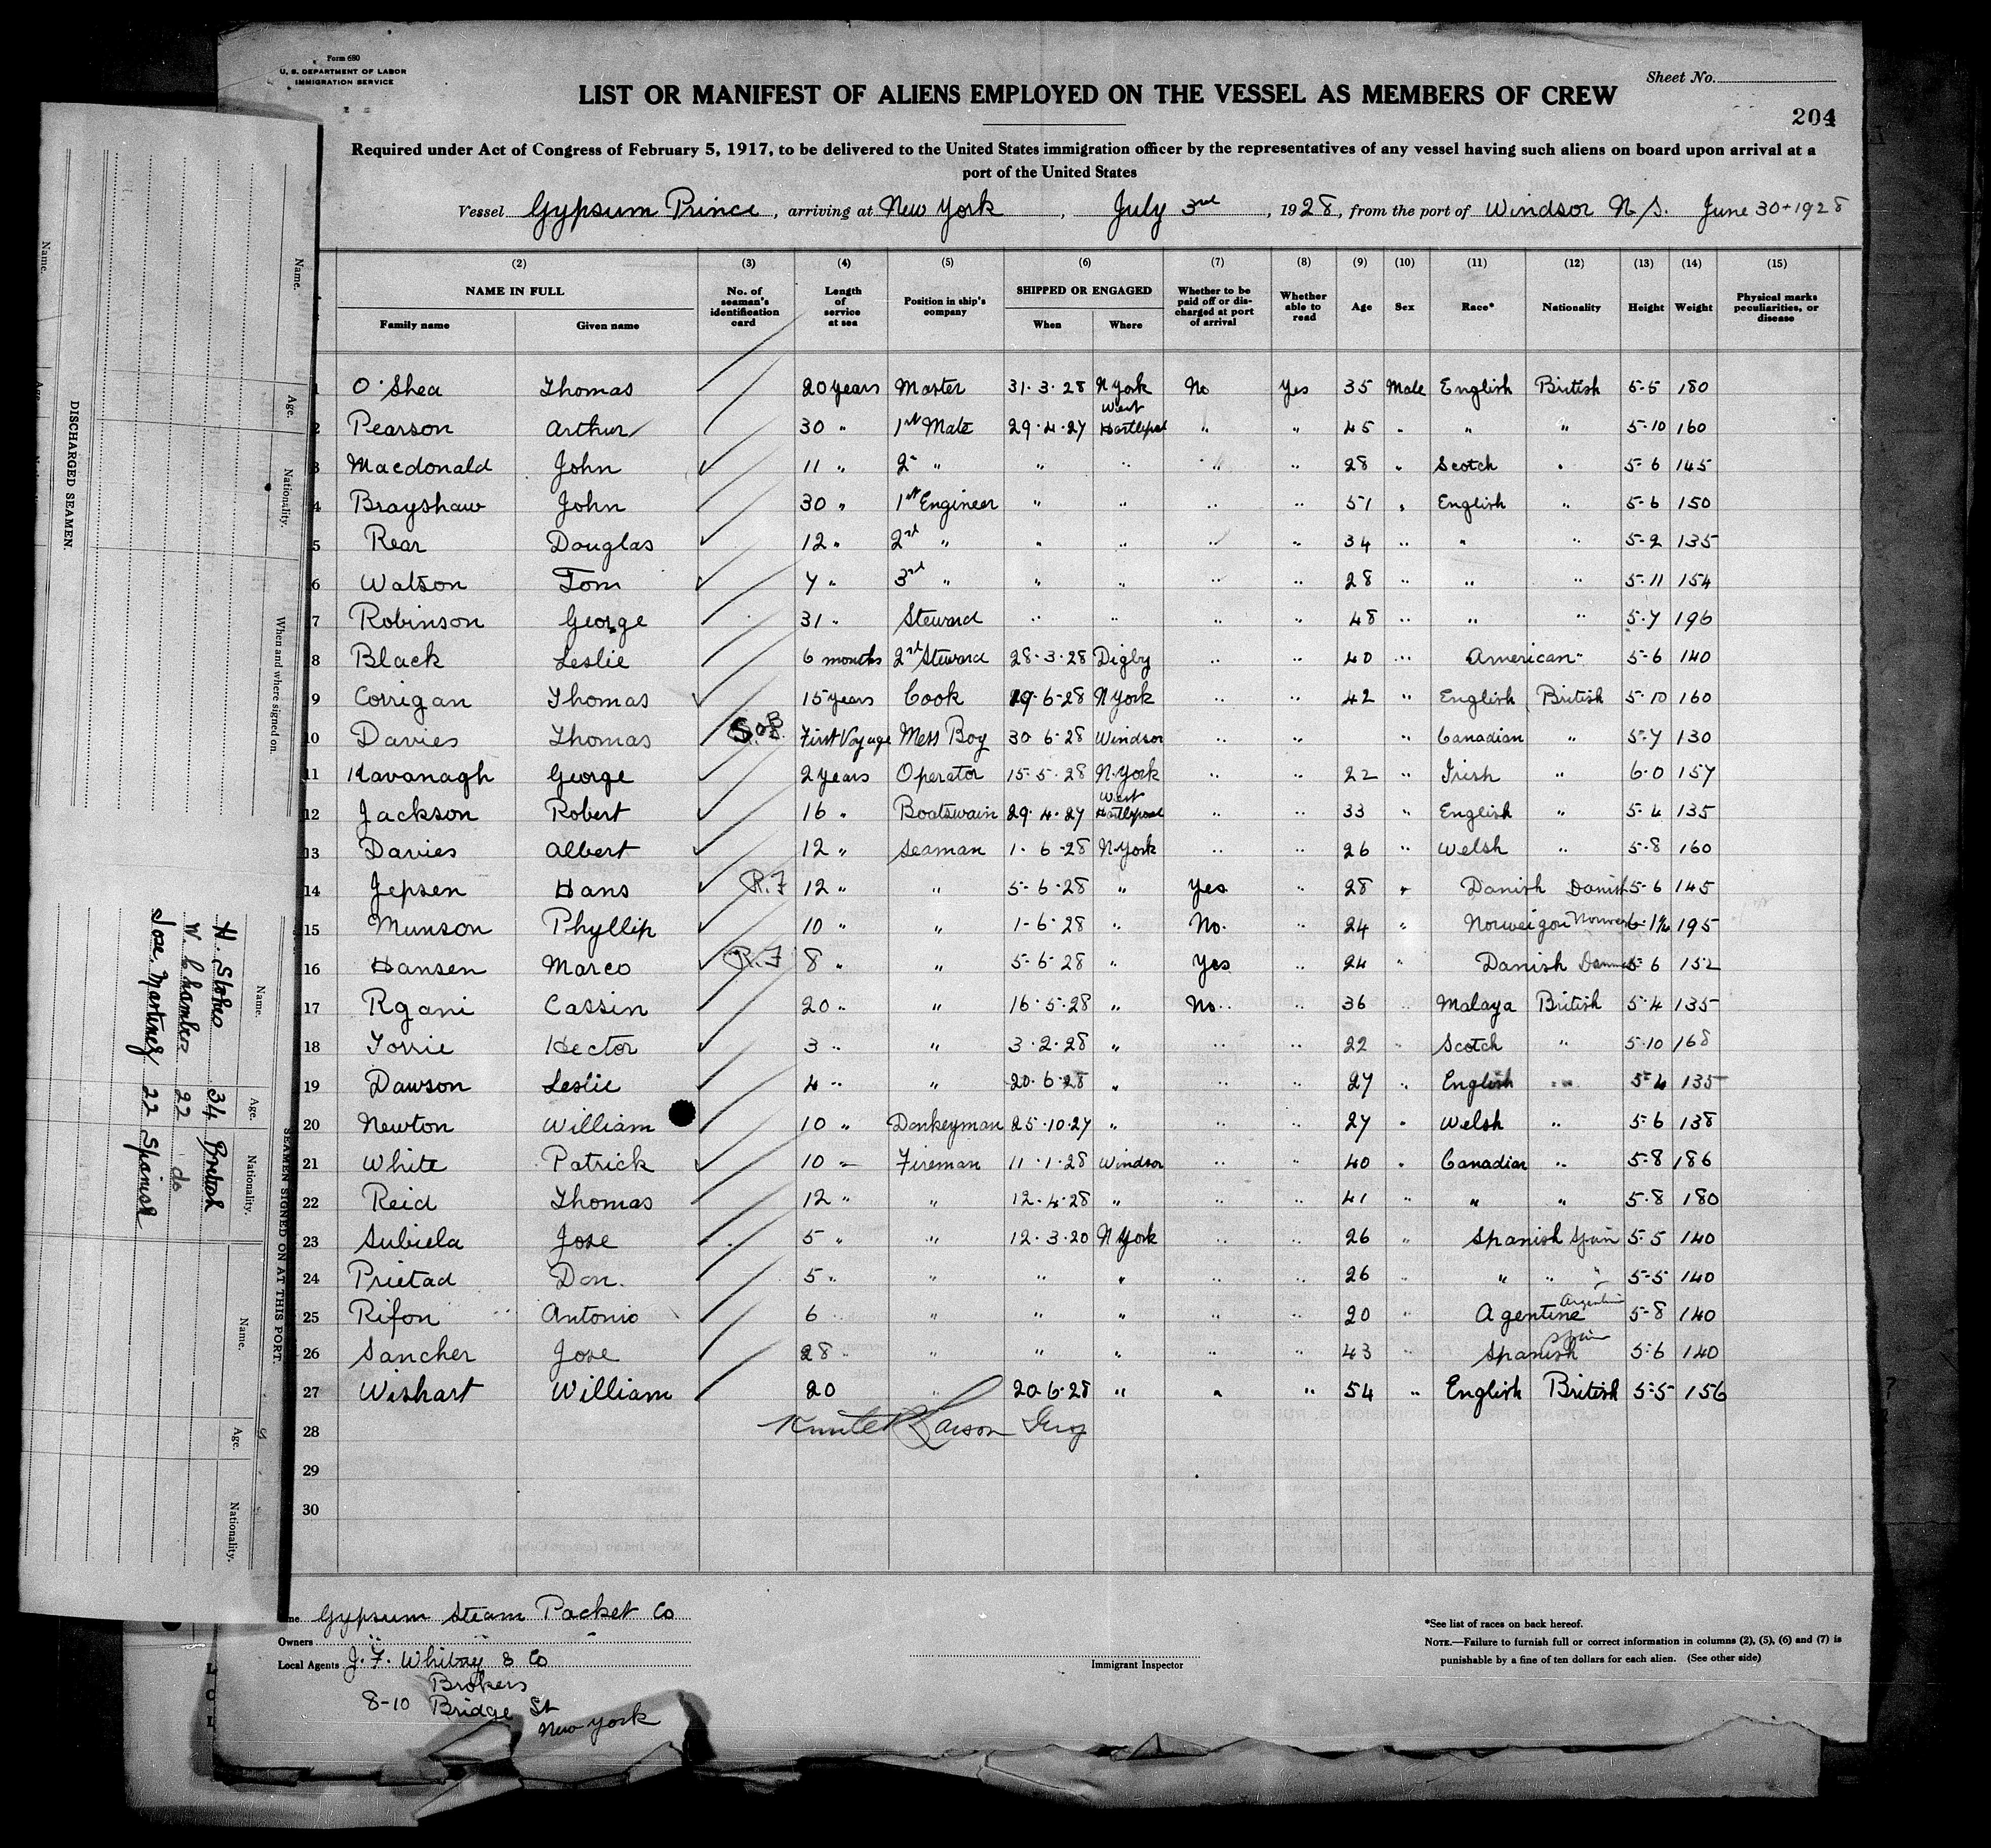 Form 680
U. S. DEPARTMENT OF LABOR
IMMIGRATION SERVICE
Sheet No.
LIST OR MANIFEST OF ALIENS EMPLOYED ON THE VESSEL AS MEMBERS OF CREW
204
Required under Act of Congress of February 5, 1917, to be delivered to the United States immigration officer by the representatives of any vessel having such aliens on board upon arrival at a
port of the United States
Vessel Gypsum Prince, arriving at New York, July 3rd, 1928, from the port of Windsor N.S. June 30 1928
(2) (3) (4) (5) (6) (7) (8) (9) (10) (11) (12) (13) (14) (15)
NAME IN FULL No. of seaman's identification card Length of service at sea Position in ship's company SHIPPED OR ENGAGED Whether to be paid off or discharged at port of arrival Whether able to read Age Sex Race* Nationality Height Weight Physical marks peculiarities, or disease
Family name Given name When Where
1 O'Shea Thomas 20 years Master 31.3.28 N York No Yes 35 Male English British 5-5 180
2 Pearson Arthur 30 " 1st Mate 29.4.27 West Hartlepool " " 45 " " " 5-10 160
3 Macdonald John 11 " 2nd " " " " " 28 " Scotch " 5-6 145
4 Brayshaw John 30 " 1st Engineer " " " " 51 " English " 5-6 150
5 Rear Douglas 12 " 2nd " " " " " 34 " " " 5-2 135
6 Watson Tom 7 " 3rd " " " " " 28 " " " 5-11 154
7 Robinson George 31 " Steward " " " " 48 " " " 5-7 196
8 Black Leslie 6 months 2nd Steward 28.3.28 Digby " " 40 " American " 5-6 140
9 Corrigan Thomas 15 years Cook 19-6-28 N York " " 42 " English British 5-10 160
10 Davies Thomas SoB First Voyage Mess Boy 30 6-28 Windsor " " " Canadian " 5-7 130
11 Kavanagh George 2 years Operator 15-5-28 N York " " 22 " Irish " 6-0 157
12 Jackson Robert 16 " Boatswain 29.4.27 West Hartlepool " " 33 " English " 5-4 135
13 Davies Albert 12 " Seaman 1-6-28 N York " " 26 " Welsh " 5-8 160
14 Jepsen Hans R.F 12 " " 5-6-28 " Yes " 28 " Danish Danish 5-6 145
15 Munson Phyllip 10 " " 1-6-28 " No. " 24 " Norweigan 195
16 Hansen Marco R.F 8 " " 5-6-28 " Yes " 24 " Danish 5-6 152
17 Rgani Cassin 20 " " 16.5.28 " No " 36 " Malaya British 5-4 135
18 Torrie Hector 3 " " 3.2.28 " " " 22 " Scotch " 5-10 168
19 Dawson Leslie 4 " " 20.6.28 " " " 27 " English " 5-4 135
20 Newton William 10 " Donkeyman 25.10.27 " " " 27 " Welsh " 5-6 138
21 White Patrick 10 " Fireman 11.1.28 Windsor " " 40 " Canadian " 5-8 186
22 Reid Thomas 12 " " 12.4.28 " " " 41 " " " 5-8 180
23 Subiela Jose 5 " " 12.3.20 N York " " 26 " Spanish Spain 5-5 140
24 Prietad Don. 5 " " " " " " 26 " " " 5-5 140
25 Rifon Antonio 6 " " " " " 20 " Agentine Argentine 5-8 140
26 Sancher Jose 28 " " " " " 43 " Spanish Spain 5-6 140
27 Wishart William 20 " 20.6.28 " " " 54 " English British 5-5 156
28 Larson
29
30
Gypsum Steam Packet Co
Owners
Local Agents J. F. Whitney & Co
Brokers
8-10 Bridge St
New York
Immigrant Inspector
*See list of races on back hereof.
NOTE.—Failure to furnish full or correct information in columns (2), (5), (6) and (7) is
punishable by a fine of ten dollars for each alien. (See other side)
DISCHARGED SEAMEN.
Name. Age. Nationality. When and where signed on.
SEAMEN SIGNED ON AT THIS PORT.
Name. Age. Nationality. Name. Age. Nationality.
H. 34 British
W. Chambers 22 do
Jose Martinez 22 Spanish